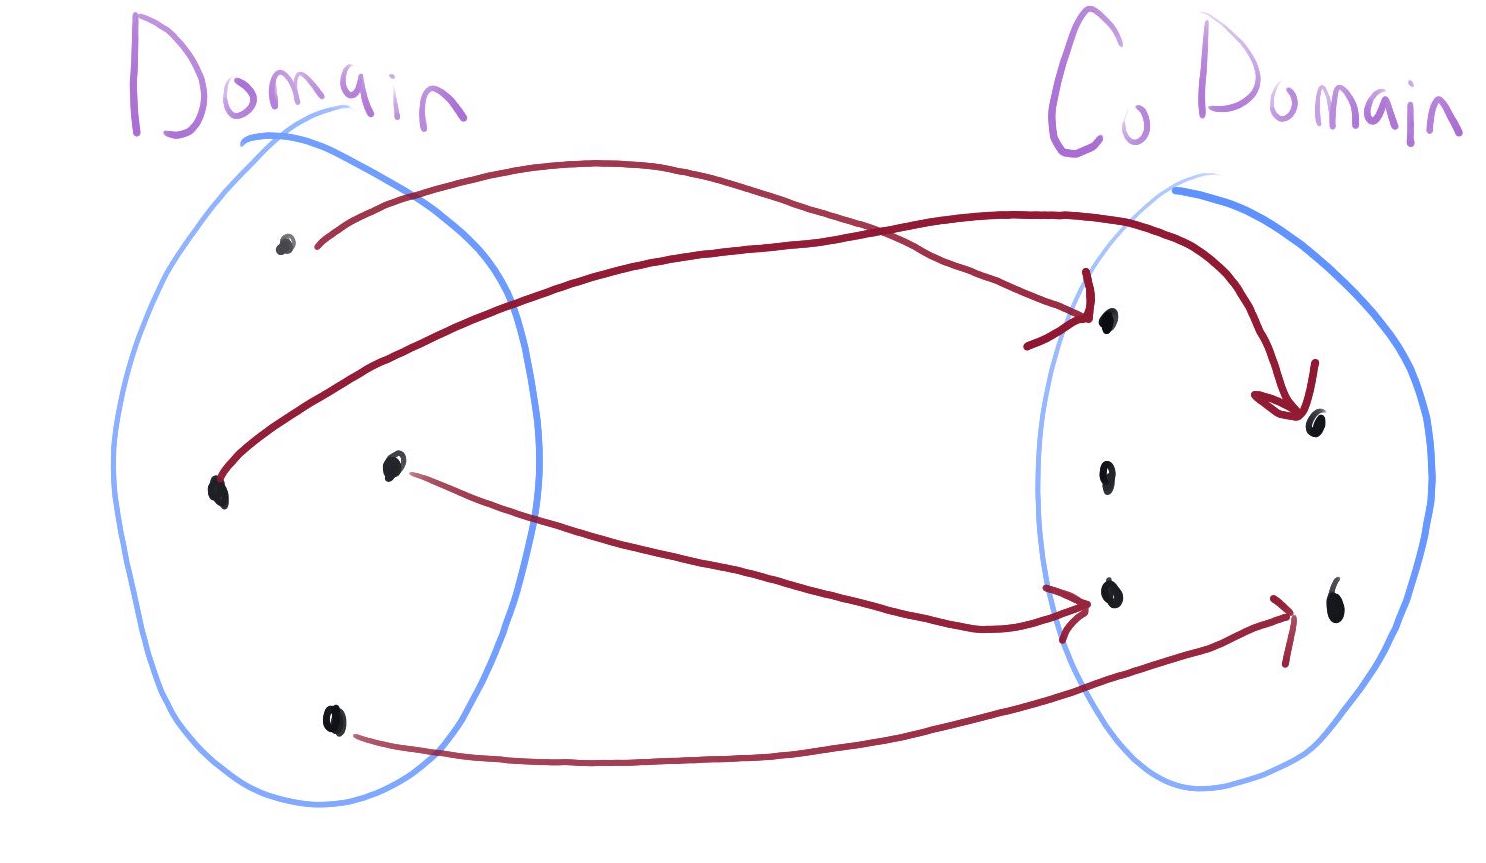 Domain
Co Domain